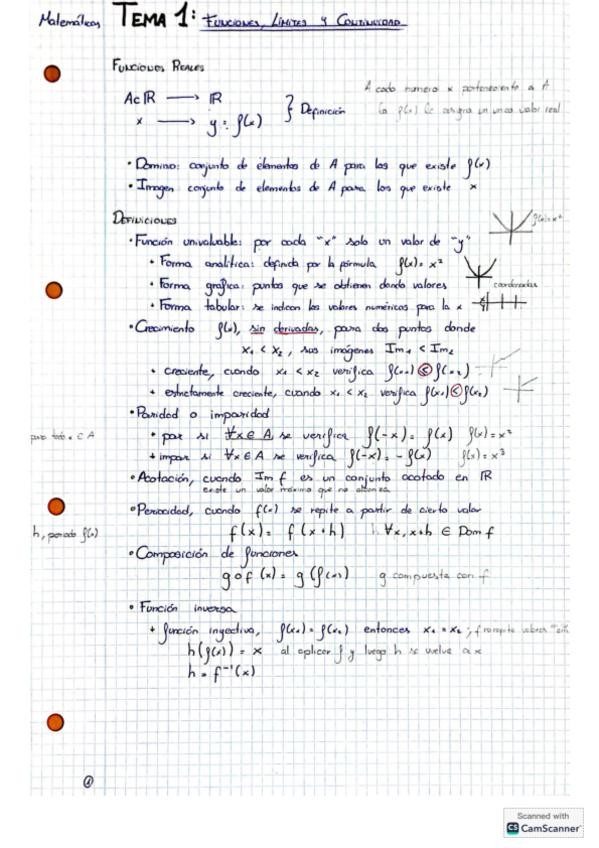 Matemáticas TEMA 1: FUNCIONES, LÍMITES Y CONTINUIDAD
FUNCIONES REALES
A cada numero x perteneciente a A
la f(x) le asigna un unico valor real
A⊂ℝ → ℝ } Definición
x → y = f(x)
• Dominio: conjunto de elementos de A para los que existe f(x)
• Imagen conjunto de elementos de A para los que existe x
DEFINICIONES
• Función univaluable: por cada "x" solo un valor de "y" f(x)=x²
+ Forma analítica: definida por la fórmula f(x) = x²
+ Forma gráfica: puntos que se obtienen dando valores coordenadas
+ Forma tabular: se indican los valores numéricos para la x
• Crecimiento f(x), sin derivadas, para dos puntos donde
x₁ < x₂, sus imágenes Im₁ < Im₂
+ creciente, cuando x₁ < x₂ verifica f(x₁) ≤ f(x₂)
+ estrictamente creciente, cuando x₁ < x₂ verifica f(x₁) < f(x₂)
• Paridad o imparidad
para todo x ∈ A + par si ∀x ∈ A, se verifica f(-x) = f(x) f(x) = x²
+ impar si ∀x ∈ A se verifica f(-x) = -f(x) f(x) = x³
• Acotación, cuando Im f es un conjunto acotado en ℝ
existe un valor máximo que no alcanza
• Periocidad, cuando f(x) se repite a partir de cierto valor
h, periodo f(x) f(x) = f(x+h) h ∀x, x+h ∈ Dom f
• Composición de funciones
g o f (x) = g (f(x)) g compuesta con f
• Función inversa
+ función inyectiva, f(x₁) = f(x₂) entonces x₁ = x₂ ; f no repite valores
h(f(x)) = x al aplicar f y luego h se vuelve a x
h = f⁻¹(x)
1
Scanned with
CS CamScanner